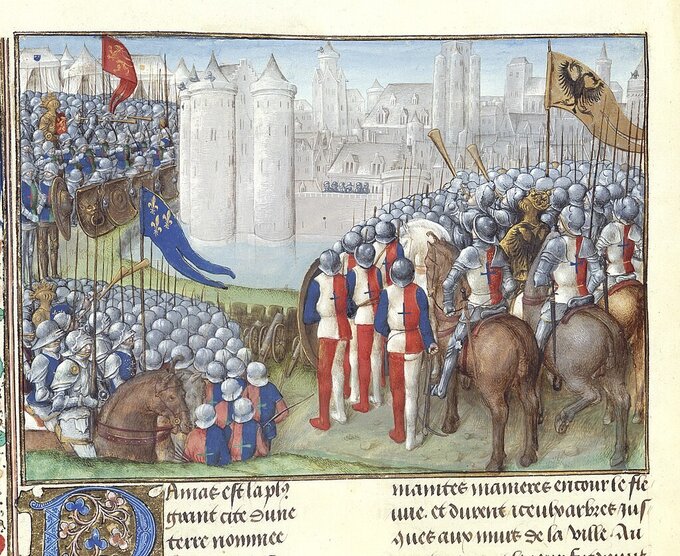 Damas est la plus
grant cite dune
terre nommee
maintes manieres en tour le fle
uue. et durent iceulx arbres jus
ques aux murs de la ville. Au